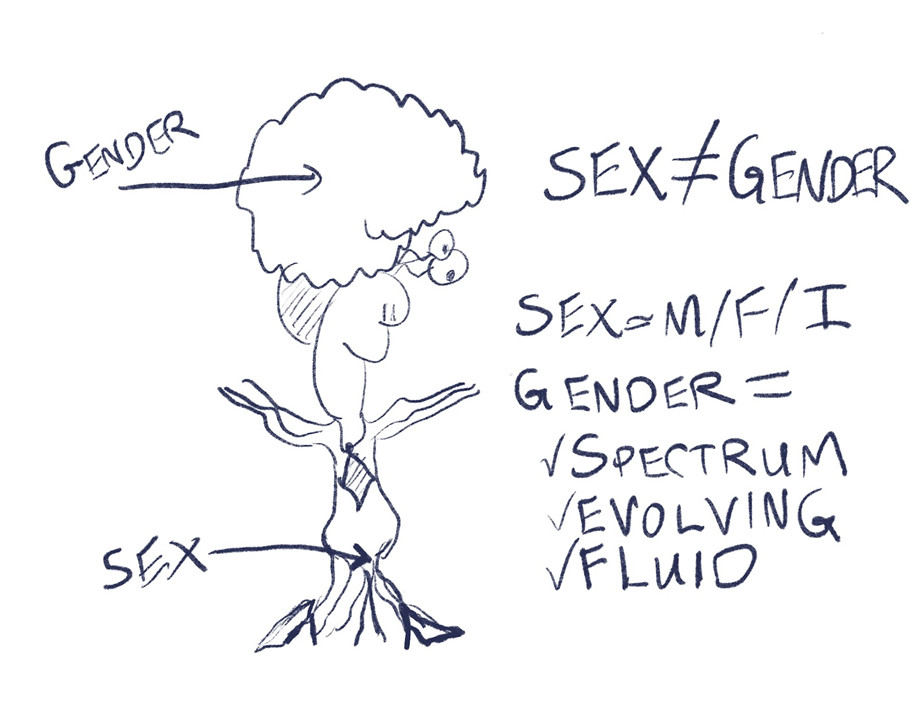 GENDER
SEX≠GENDER
SEX=M/F/I
GENDER=
√SPECTRUM
√EVOLVING
√FLUID
SEX